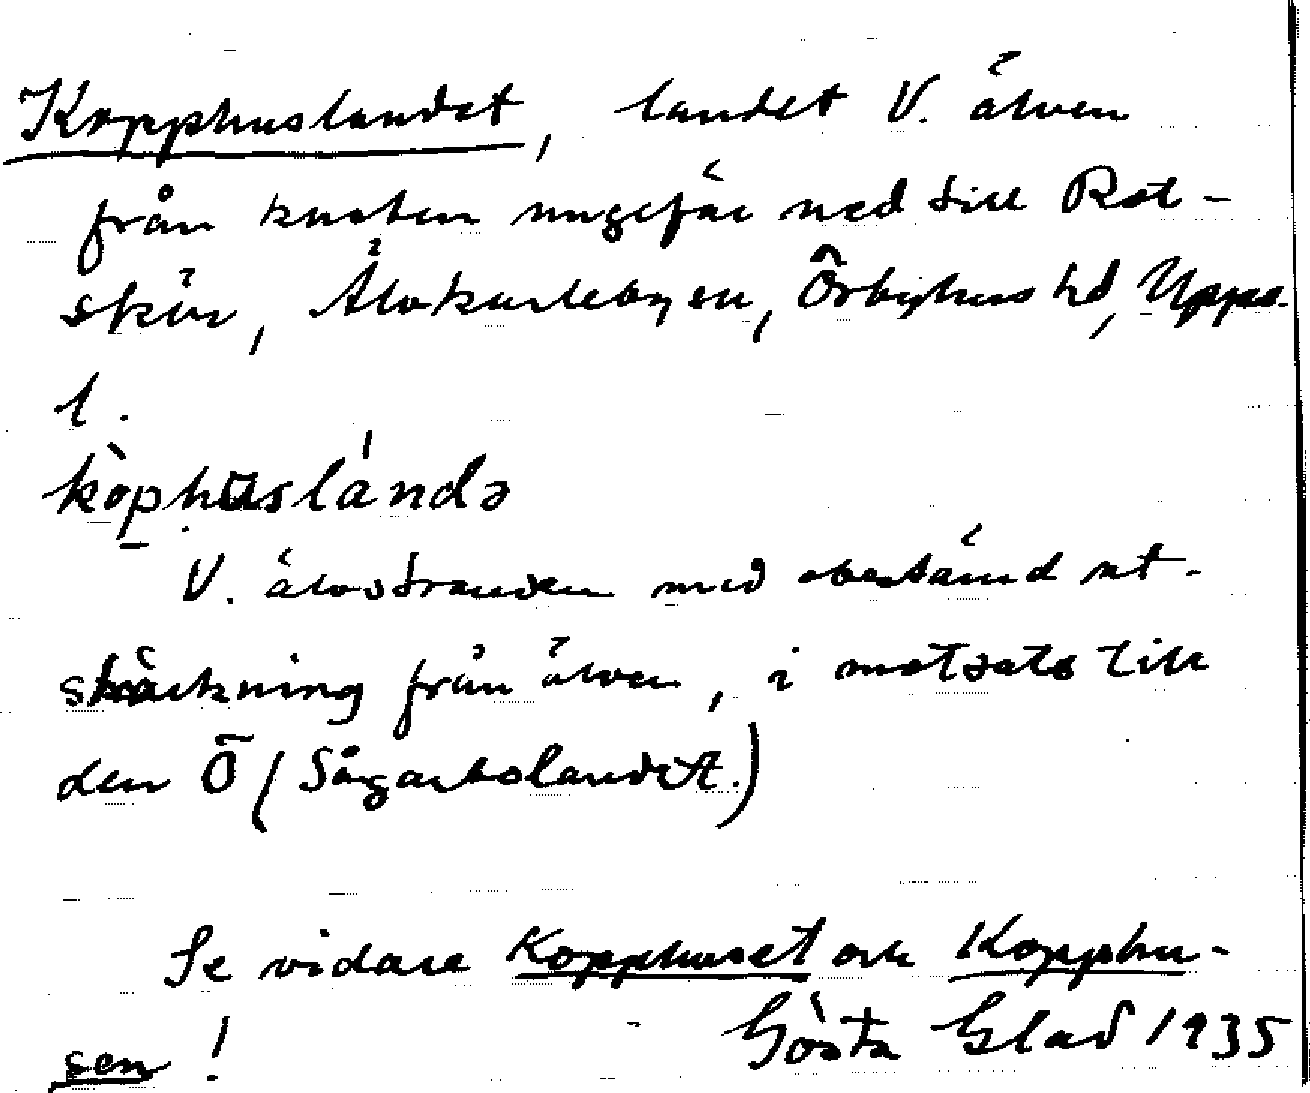 Kopphuslandet, landet V. älven
från kusten ungefär ned till Rot-
skär, Älvkarleby sn, Örbyhus hd, Uppsa.
l.
kòphusĺandə
V. älvstranden med obestämd ut-
sträckning från älven, i motsats till
den Ö (Sågarbolandet.)
Se vidare Kopphuset och Kopphu-
sen! Gösta Glad 1935